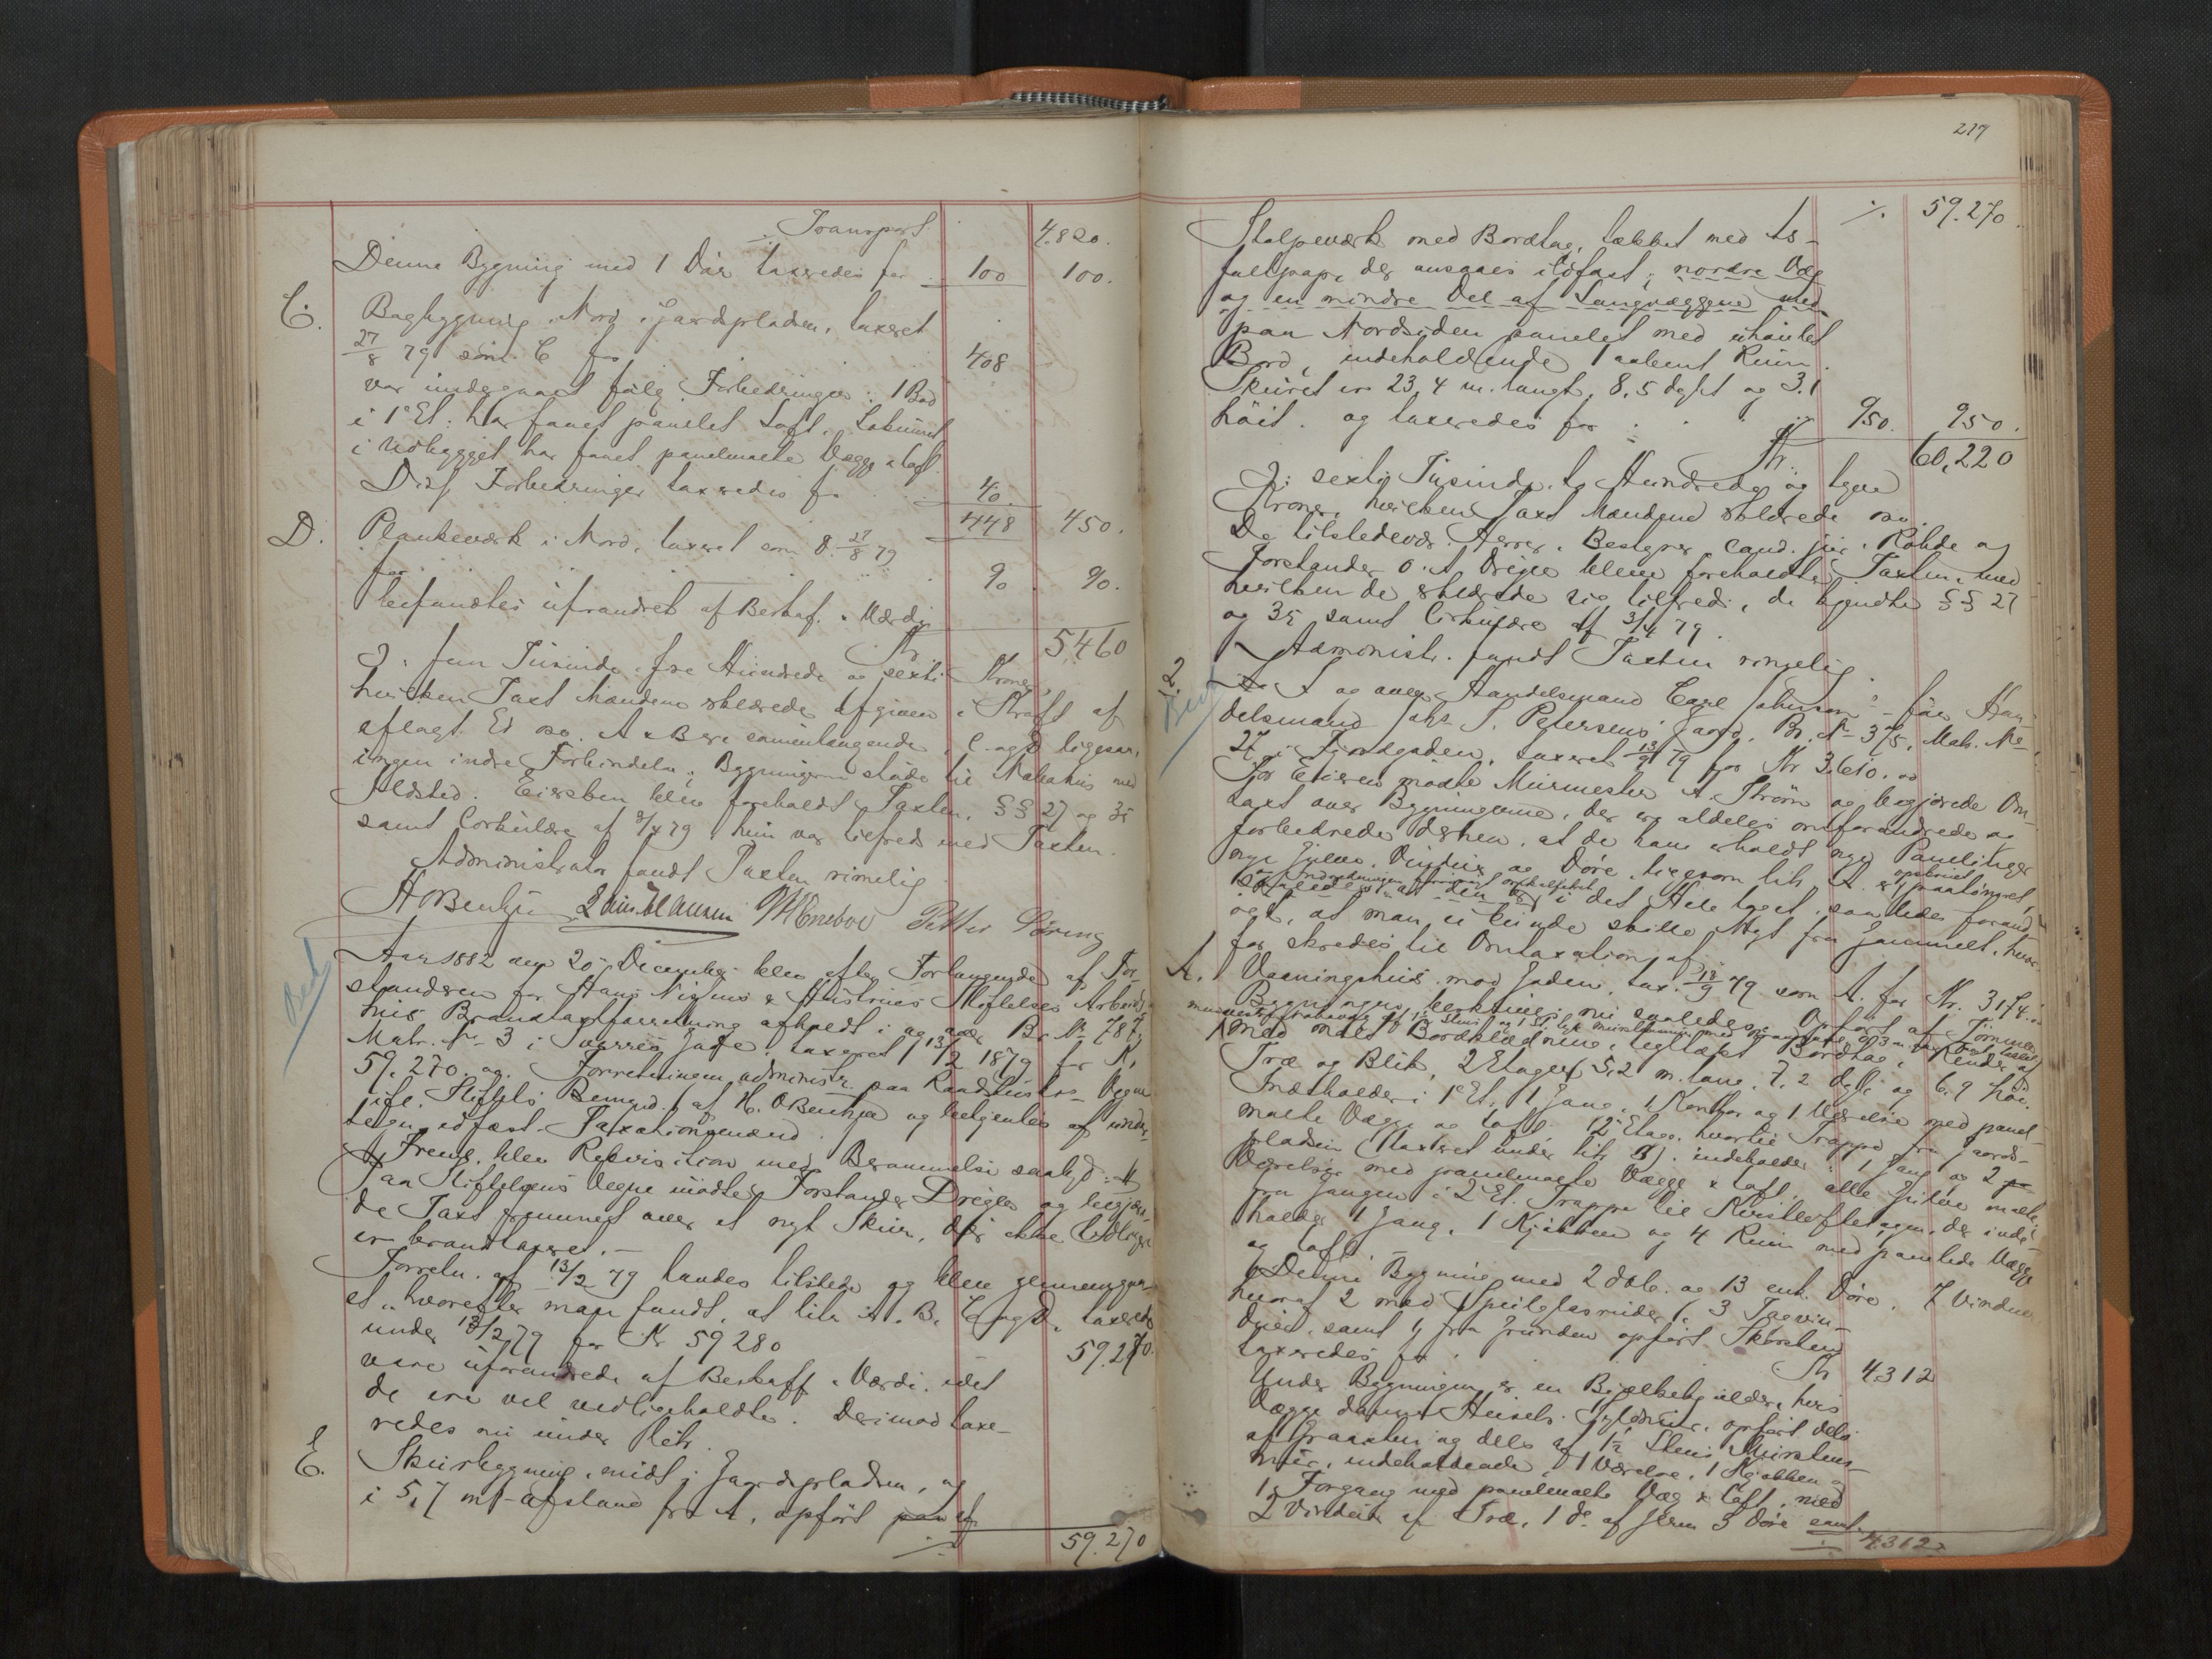 Transport 4.820.
Denne Bygning med 1 Dør taxeredes for 100 100.
C. Bagbygning i Nord i Gaardspladsen, taxeret
27/8 79 som C for 408
var undergaaet følg. Forbedringer: 1 Bod
i 1e Et. har faaet panelet Loft. Lokummet
i Udbygget har faaet panelmalte Vægge & Loft.
Diss. Forbedringer taxeredes for 40.
448 450.
D. Plankeværk i Nord, taxeret som D. 27/8 79
for 90 90.
befandtes uforandret af Beskaf. & Værdi.
Kr. 5460
J: fem Tusinde fire Hundrede og sexti Kroner,
hvilken Taxt Mændene erklærede afgiven i Kraft af
aflagt Ed osv. A & B ere sammenhængende, C. og D ligesaa,
ingen indre Forbindelse. Bygningerne støde til Nabohus med
Ildsted. Eiersken blev foreholdt Taxten, §§ 27 og 35
samt Cirkulære af 3/4 79, hun var tilfreds med Taxten.
Administrator fandt Taxten rimelig.
Petter Søring
Aar 1882 den 20de December blev efter Forlangende af For-
standeren for Hans Nissens & Hustrues Stiftelses Arbeids-
hus Brandtaxtforretning afholdt i og over Br. No 787,
Matr. No 3 i Sverres Gade, taxeret 13/2 1879 for Kr.
59.270. oo. Forretningen administr. paa Raadstuens Vegne
ifl. Stiftets Bemynd. af H. O. Bentzen og betjentes af under-
tegn. edfæst. Taxationsmænd.
Frem. blev Rekvisition med Berammelse saalyd:
Paa Stiftelsens Vegne mødte Forstander Dreyer og begjære-
de Taxt fremmet over et nyt Skur, der ikke tidligere
er brandtaxeret.
Forretn. af 13/2 79 havdes tilstede og blev gjennemgaa-
et, hvorefter man fandt, at litr. A. B. C. og D, taxerede
under 13/2 79 for Kr 59280 59.270.
vare uforandrede af Beskaff. & Værdi, idet
de ere vel vedligeholdte. Derimod taxe-
redes nu under litr.
E. Skurbygning, midt i Gaardspladsen, og
i 5,7 m. Afstand fra A, opført af
59.270
217
Stolpeværk med Bordtag, tækket med As- ./. 59.270.
faltpap, der ansaaes ildfast; nordre Væg
og en mindre Del af Langvæggene med
paa Nordsiden panelet med uhøvlet
Bord, indeholdende 1 aabent Rum.
Skuret er 23,4 m. langt, 8,5 dybt og 3.1
høit. og taxeredes for 950. 950.
Kr. 60,220
J: sexti Tusinde, to Hundrede og tyve
Kroner, hvilken Taxt Mændene erklærede osv.
De tilstedevær. Herrer, Bestyrer cand. jur. Rohde og
Forstander O. A. Dreyer bleve foreholdte Taxten, med
hvilken de erklærede sig tilfreds, de kjendte §§ 27
og 35 samt Cirkulære af 3/4 79.
Administr. fandt Taxten rimelig.
2. I og over Handelsmand Carl Johnsons - før Han-
delsmand Johs. S. Petersens Gaard, Br. No 375, Matr. No
27 i Fjordgaden, taxeret 13/9 79 for Kr 3.610. oo
For Eieren mødte Murmester A. Strøm og begjærede Om-
taxt over Bygningerne, der ere aldeles omforandrede og
forbedrede derhen, at de have erholdt nye Panelinger
nye Gulve, Vinduer og Døre, ligesom litr. A. er opskruet, paatømret,
i det Hele taget saaledes forand-
ret, at man ei kunde skille Nyt fra Gammelt, hvor-
for skredes til Omtaxation af:
A. Vaaningshus mod Gaden, tax. 13/9 79 som A. for Kr. 3174.
Bygningen beskrives nu saaledes: Opført af Tømmer
med malt Bordklædning, tegltækt Bordtag, Render af
Træ og Blik, 2 Etager, 5,2 m. lang, 7,2 dyb og 6.9 høi.
Indeholder: i 1e Et. 1 Gang, 1 Kontor og 1 Værelse med panel-
malte Vægge og Loft. 2e Etage, hvortil Trappe fra Gaards-
pladsen (taxeret under litr B). indeholder: 1 Gang og 2
Værelser med panelmalte Vægge & Loft, alle Gulve malte.
Fra Gangen i 2e Et. Trappe til Kvistloftetagen, der inde-
holder 1 Gang, 1 Kjøkken og 4 Rum med panelede Vægge
og Loft.
Denne Bygning med 2 dob. og 13 enk. Døre, 7 Vinduer
hvoraf 2 med Speilglasruder, 3 Tagvin-
duer, samt 1 fra Grunden opført Skorsten
taxeredes for Kr 4312
Under Bygningen er en Bjælkekjælder, hvis
Vægge danne Husets Fyldmur, opført dels
af Graasten og dels af 1½ Stens Murstens-
mur, indeholdende 1 Værelse, 1 Kjøkken og
1 Forgang med panelmalte Væg & Loft, med
2 Vinduer af Træ, 1 do af Jern 3 Døre samt
4312